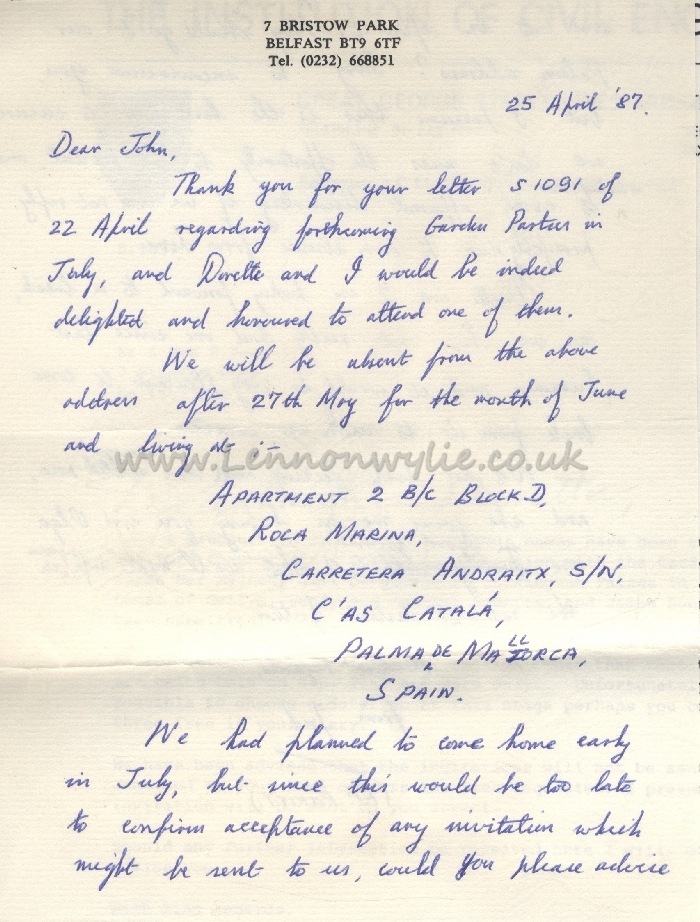 7 BRISTOW PARK
BELFAST BT9 6TF
Tel. (0232) 668851
25 April '87.
Dear John,
Thank you for your letter S1091 of
22 April regarding forthcoming Garden Parties in
July, and Dorette and I would be indeed
delighted and honoured to attend one of them.
We will be absent from the above
address after 27th May for the month of June
and living at :-
www.Lennonwylie.co.uk
APARTMENT 2 B/C BLOCK D,
ROCA MARINA,
CARRETERA ANDRAITX, S/N,
C'AS CATALÁ,
PALMA DE MALLORCA,
SPAIN.
We had planned to come home early
in July, but since this would be too late
to confirm acceptance of any invitation which
might be sent to us, could you please advise